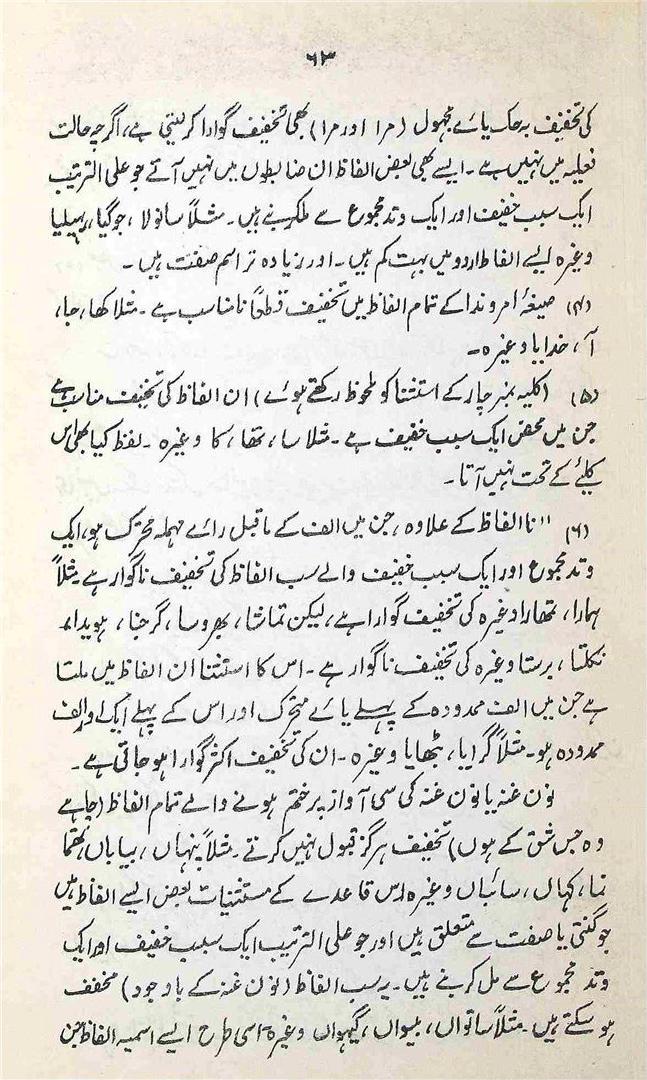 ۶۳
کی تخفیف بہ حک یائے مجہول (مرا اور مرا) بھی تخفیف گوارا کر لیتی ہے، اگرچہ حالت
فعلیہ میں نہیں ہے۔ ایسے بھی بعض الفاظ ان ضابطوں میں نہیں آتے جو علی الترتیب
ایک سبب خفیف اور ایک وتد مجموع سے ملکر بنے ہیں۔ مثلاً سانولا، جوگیا،
وغیرہ ایسے الفاظ اردو میں بہت کم ہیں۔ اور زیادہ تر اسم صفت ہیں۔
(۴) صیغۂ امر و ندا کے تمام الفاظ میں تخفیف قطعاً نامناسب ہے۔ مثلاً کھا، جا،
آ، خدایا وغیرہ۔
(۵) (کلیہ نمبر چار کے استثنا کو ملحوظ رکھتے ہوئے) ان الفاظ کی تخفیف مناسب ہے
جن میں محض ایک سبب خفیف ہے۔ مثلاً سا، تھا، کا وغیرہ۔ لفظ کیا بھی اس
کلیے کے تحت نہیں آتا۔
(۶) "نا الفاظ کے علاوہ، جن میں الف کے ماقبل رائے مہملہ متحرک ہو، ایک
وتد مجموع اور ایک سبب خفیف والے سب الفاظ کی تخفیف ناگوار ہے۔ مثلاً
ہمارا، تمھارا وغیرہ کی تخفیف گوارا ہے، لیکن تماشا، بھروسا، گرجنا، ہویدا،
نکلتا، برستا وغیرہ کی تخفیف ناگوار ہے۔ اس کا استثنا ان الفاظ میں ملتا
ہے جن میں الف ممدودہ کے پہلے یائے متحرک اور اس کے پہلے ایک اور الف
ممدودہ ہو۔ مثلاً گرایا، بٹھایا وغیرہ۔ ان کی تخفیف اکثر گوارا ہو جاتی ہے۔
نون غنہ یا نون غنہ کی سی آواز پر ختم ہونے والے تمام الفاظ (چاہے
وہ جس شق کے ہوں) تخفیف ہرگز قبول نہیں کرتے۔ مثلاً پنہاں، بیاباں،
نما، کہاں، سائباں وغیرہ اس قاعدے کے مستثنیات بعض ایسے الفاظ ہیں
جو گنتی یا صفت سے متعلق ہیں اور جو علی الترتیب ایک سبب خفیف اور ایک
وتد مجموع سے مل کر بنے ہیں۔ یہ سب الفاظ (نون غنہ کے باوجود) مخفف
ہو سکتے ہیں۔ مثلاً ساتواں، بیسواں، گیہواں وغیرہ اسی طرح ایسے اسمیہ الفاظ جن